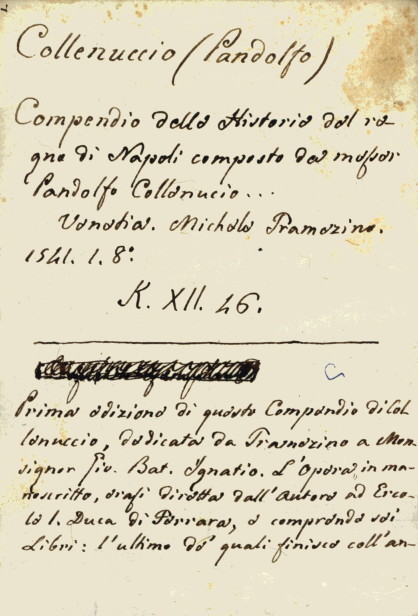 Collenuccio (Pandolfo)
Compendio delle Historie del re
gno di Napoli composto da messer
Pandolfo Collenucio...
Venetia. Michele Tramezino.
1541. 1. 8°.
K. XII. 46.
Prima edizione di questo Compendio di Col
lenuccio, dedicata da Tramezino a Mon-
signor Gio. Bat. Ignatio. L'Opera in ma-
noscritto, erasi diretta dall'Autore ad Erco-
le I. Duca di Ferrara, e comprende sei
Libri: l'ultimo de' quali finisce coll'an-